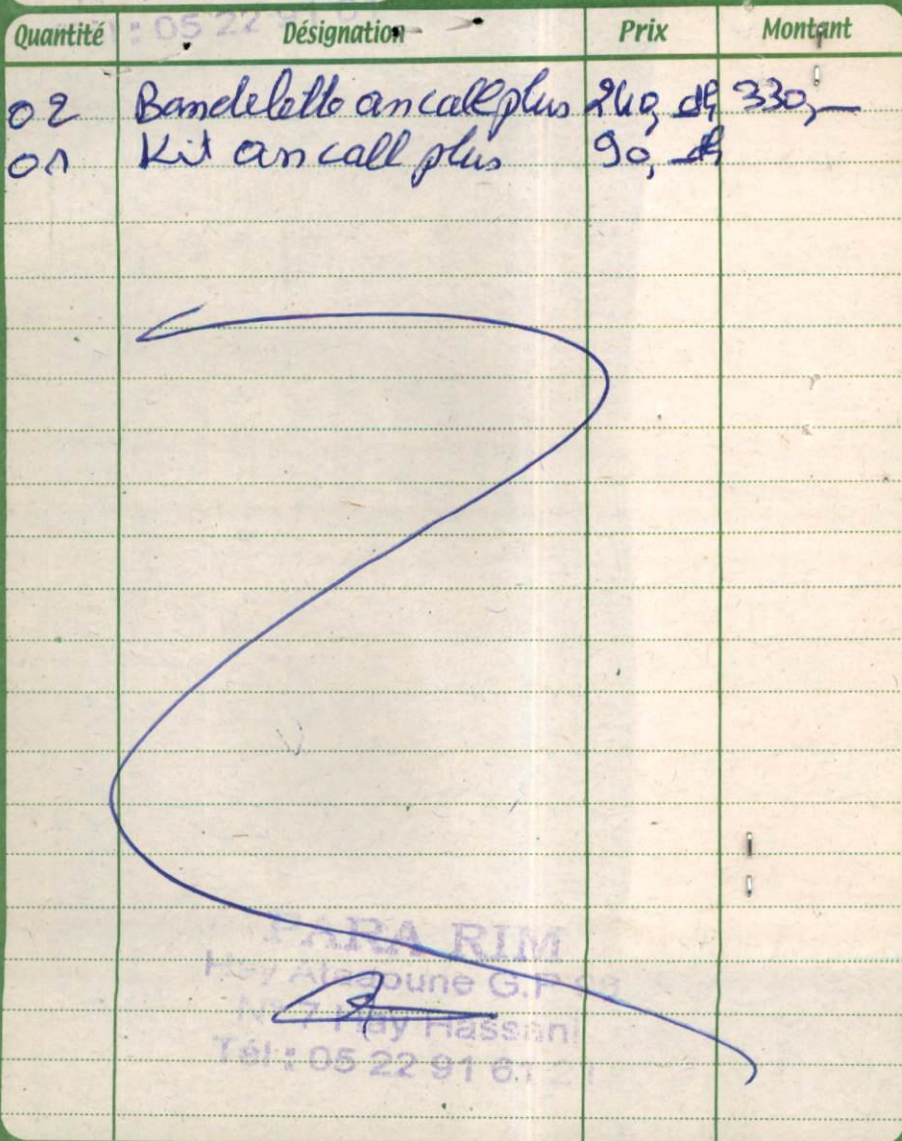 : 05 22 91 6
Quantité Désignation Prix Montant
02 Bandelette oncallplus 240, dh 330,—
01 Kit on call plus 90, dh
PARA RIM
Hay G.P
N° 7 Hay Hassani
Tél : 05 22 91 61